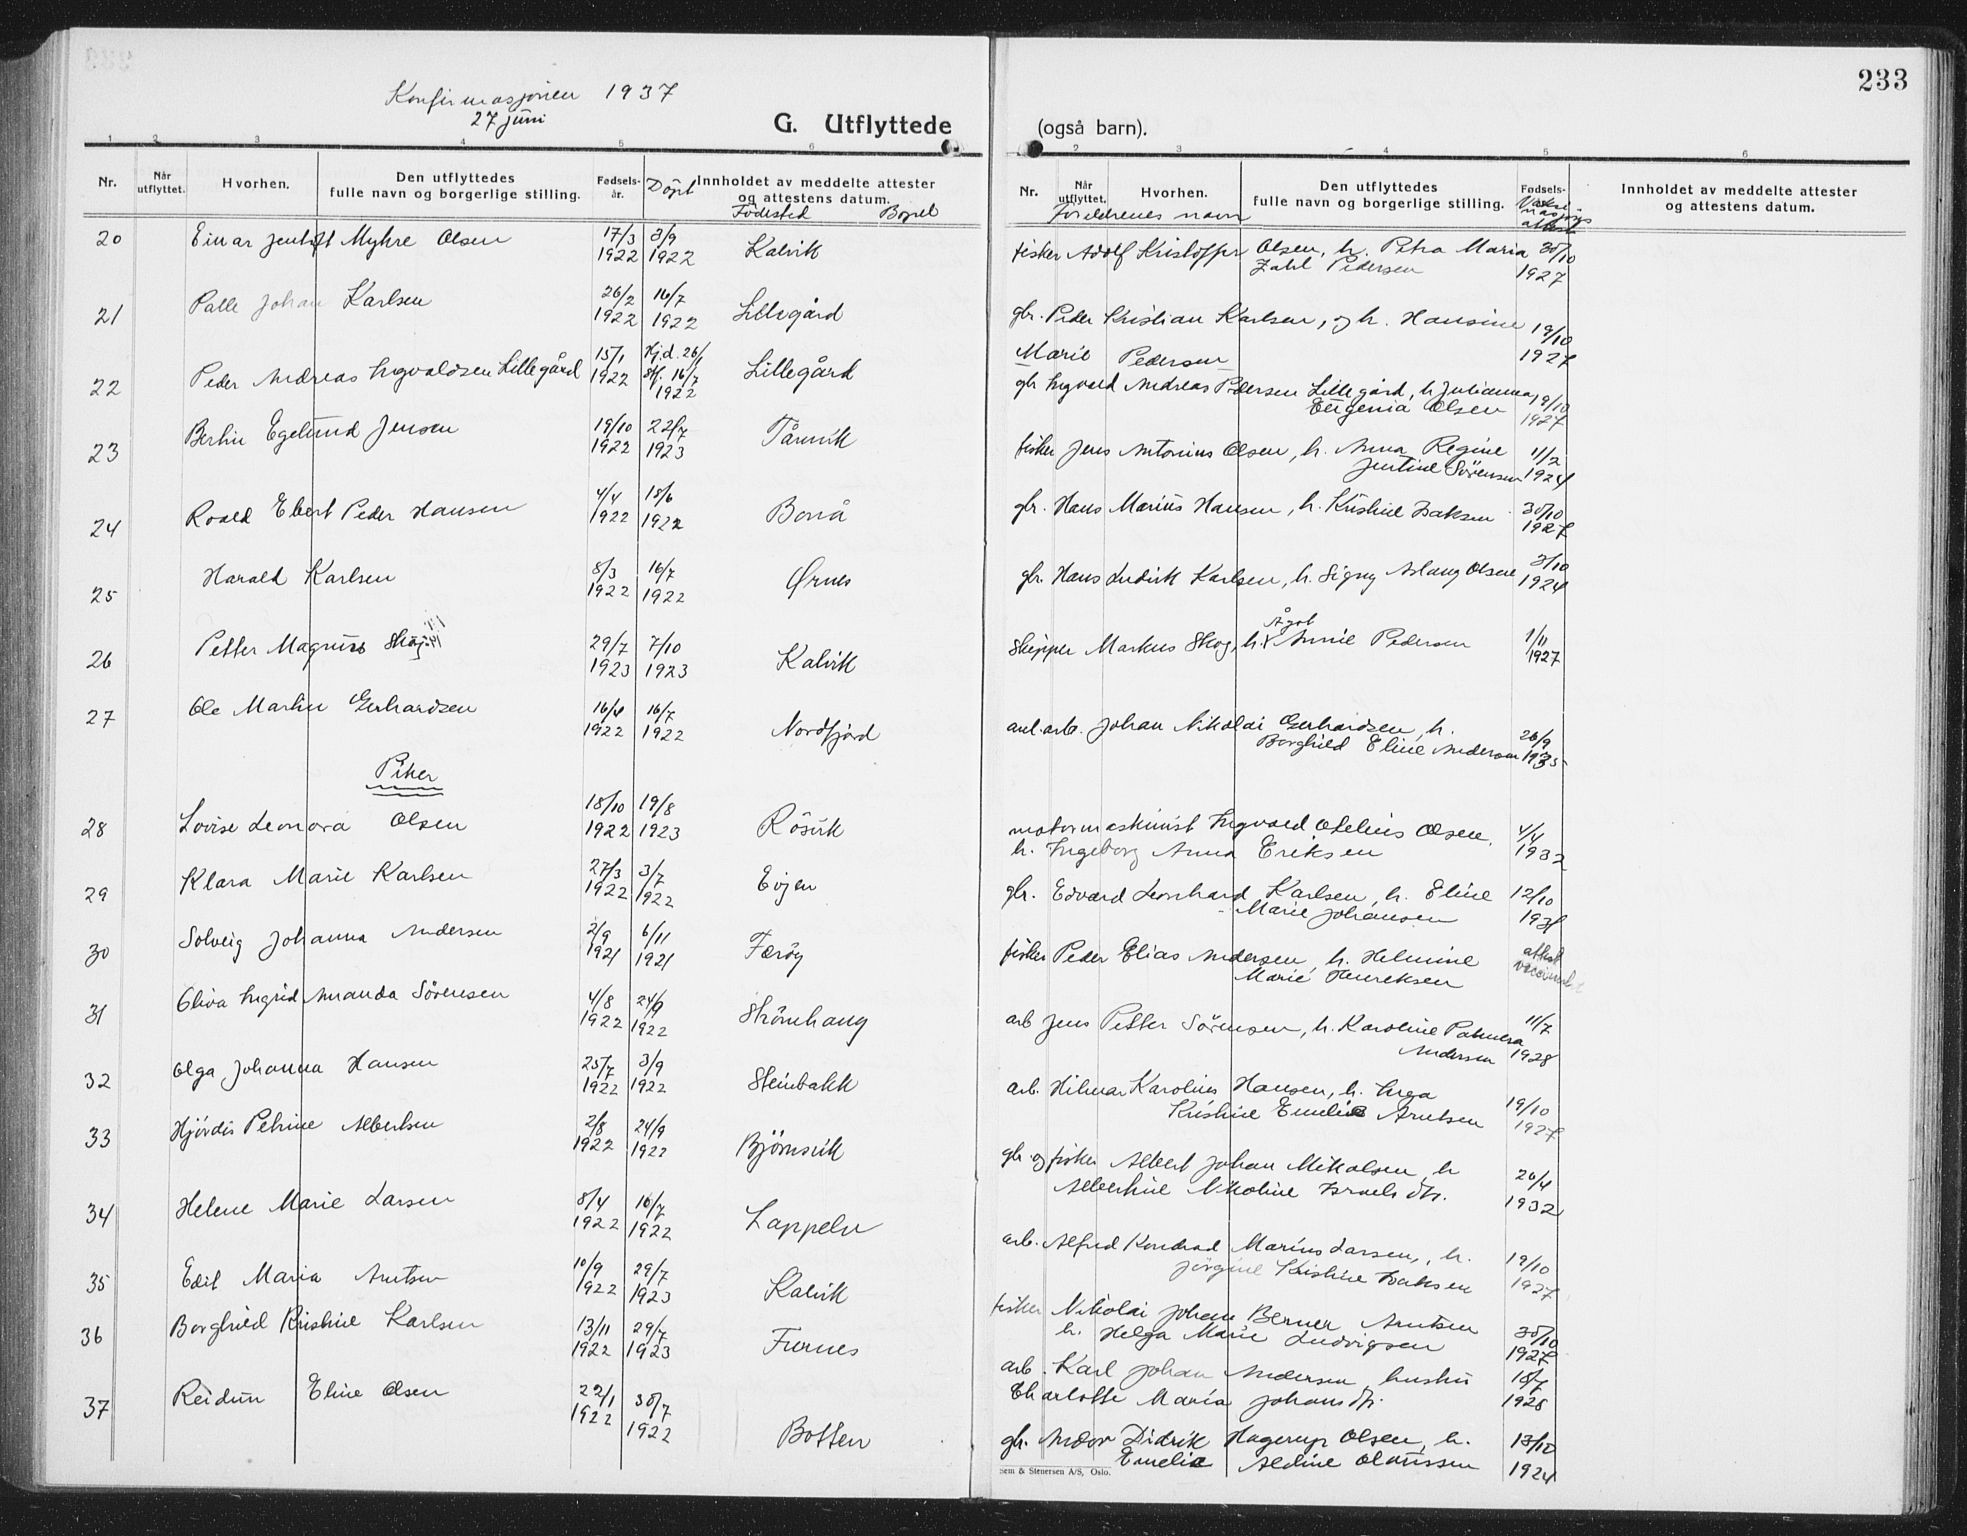 233
Konfirmasjonen 1937
27 juni
G. Utflyttede
(også barn).
1 2 3 4 5 6
2 3 4 5 6
Nr.
Når utflyttet.
Hvorhen.
Den utflyttedes
fulle navn og borgerlige stilling.
Fødsels-
år.
Döpt
Innholdet av meddelte attester
og attestens datum.
Födested Bopel
Nr.
Når utflyttet.
Hvorhen.
Den utflyttedes
fulle navn og borgerlige stilling.
Fødsels-
Innholdet av meddelte attester
og attestens datum.
Foreldrenes navn
attest
20 Einar Jentoft Myhre Olsen 17/3 1922 3/9 1922 Kalvik
fisker Adolf Kristoffer Olsen, h. Petra Maria 30/10
Zahl Pedersen 1927
21 Palle Johan Karlsen 26/2 1922 16/7 1922 Lillegård
gbr. Peder Kristian Karlsen, og h. Hansine 19/10
Marie Pedersen 1927
22 Peder Andreas Ingvaldsen Lillegård 15/1 1922 Hj.d. 26/1 Stf. 16/7 1922 Lillegård
gbr Ingvald Andreas Pedersen Lillegård, h Julianna 19/10
Eugenia Olsen 1927
23 Berlin Egelund Jensen 19/10 1922 22/7 1923 Tårnvik
fisker Jens Antonius Olsen, h. Anna Regine 11/2
Jentine Sörensen 1924
24 Roald Ebert Peder Hansen 4/4 1922 18/6 1922 Bonå
gbr. Hans Marius Hansen, h. Kristine Isaksen 30/10 1927
25 Harald Karlsen 8/3 1922 16/7 1922 Ørnes
gbr. Hans Ludvik Karlsen, h. Signy Aslaug Olsen 3/10 1924
26 Petter Magnus Skog 29/7 1923 7/10 1923 Kalvik
Ågot
skipper Markus Skog, h. Annie Pedersen 1/11 1927
27 Ole Martin Gerhardsen 16/4 1922 16/7 1922 Nordfjord
anl. arb. Johan Nikolai Gerhardsen, h. 26/9
Borghild Eline Andersen 1935
Piker
28 Lovise Leonora Olsen 18/10 1922 19/8 1923 Rösvik
motormaskinist Ingvald Otelius Olsen, 4/4
h. Ingeborg Anna Eriksen 1932
29 Klara Marie Karlsen 27/3 1922 3/7 1922 Evjen
gbr. Edvard Leonhard Karlsen, h. Eline 12/10
Marie Johansen 1931
30 Solveig Johanna Andersen 2/9 1921 6/11 1921 Færöy
fisker Peder Elias Andersen, h. Helmine attest
Marie Henriksen
31 Oliva Ingrid Amanda Sörensen 4/8 1922 24/9 1922 Strömhaug
arb Jens Petter Sörensen, h. Karoline Palmera 11/7
Andersen 1928
32 Olga Johanna Hansen 25/7 1922 3/9 1922 Steinbakk
arb. Hilmar Karolius Hansen, h. Inga 19/10
Kristine Emelie Arntsen 1927
33 Hjördis Petrine Albertsen 2/8 1922 24/9 1922 Björnsvik
gbr og fisker Albert Johan Mikalsen, h 26/4
Albertine Nikoline Israelsdtr. 1932
34 Helene Marie Larsen 8/4 1922 16/7 1922 Lappelv
arb. Alfred Konrad Marius Larsen, h. 19/10
Jörgine Kristine Isaksen 1927
35 Edit Maria Arntsen 10/9 1922 29/7 1923 Kalvik
fisker Nikolai Johan Berner Arntsen 30/10
h. Helga Marie Ludvigsen 1927
36 Borghild Kristine Karlsen 13/11 1922 29/7 1923 Furnes
arb. Karl Johan Andersen, hustru 18/7
Charlotte Maria Johansdtr. 1928
37 Reidun Eline Olsen 22/1 1922 30/7 1922 Botten
gbr. Andor Didrik Hagerup Olsen, h. 13/10
Emelie Aldine Olaussen 1924
Sem & Stenersen A/S, Oslo.